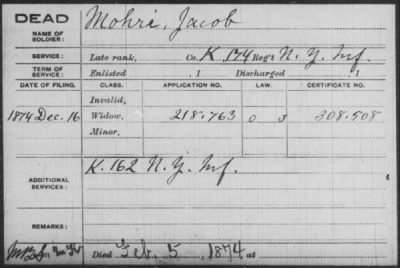 DEAD
NAME OF SOLDIER: Mohri, Jacob
SERVICE: Late rank, Co. K, 174 Reg't N. Y. Inf.
TERM OF SERVICE: Enlisted , 1 Discharged , 1
DATE OF FILING. CLASS. APPLICATION NO. LAW. CERTIFICATE NO.
Invalid,
1874 Dec. 16 Widow, 218.763 0 3 208.508
Minor,
ADDITIONAL SERVICES: K. 162 N. Y. Inf.
REMARKS:
Died Feb. 5, 1874 at